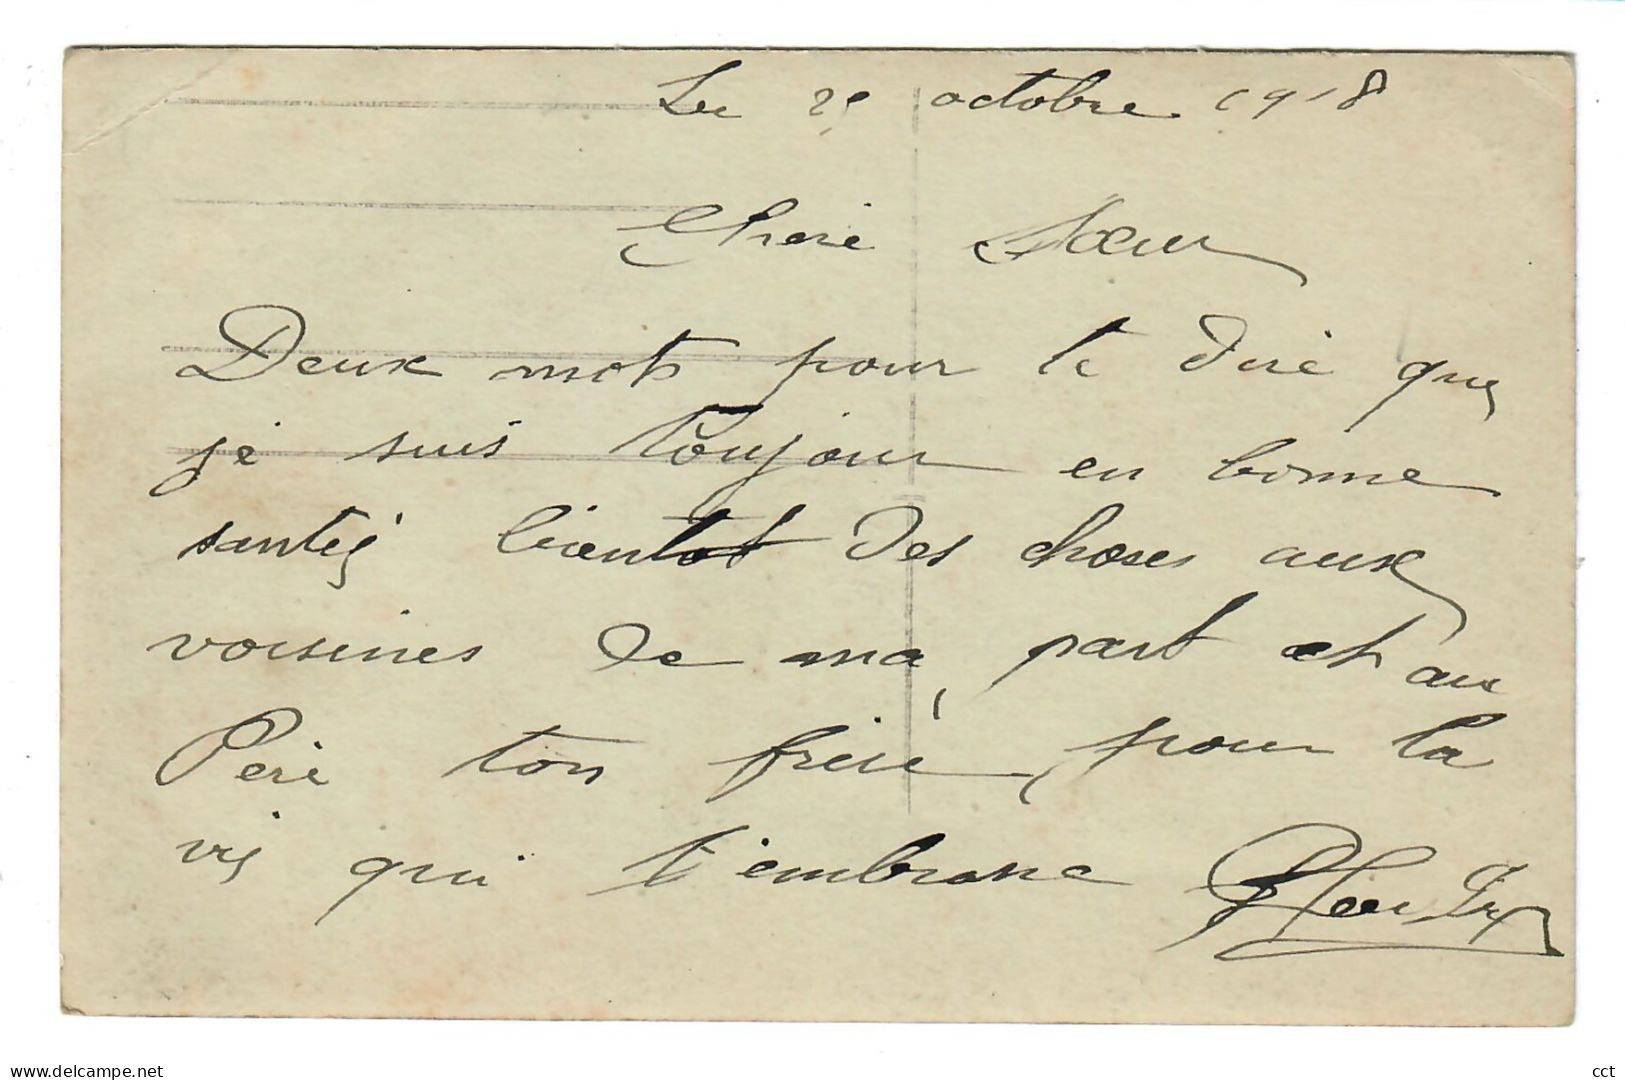 Le 25 octobre 1918
Chere Sœur
Deux mots pour te dire que
je suis toujour en bonne
santé, bientot des choses aux
voisines de ma part et au
Père ton frere, pour la
vie qui t'embrasse
www.delcampe.net
cct